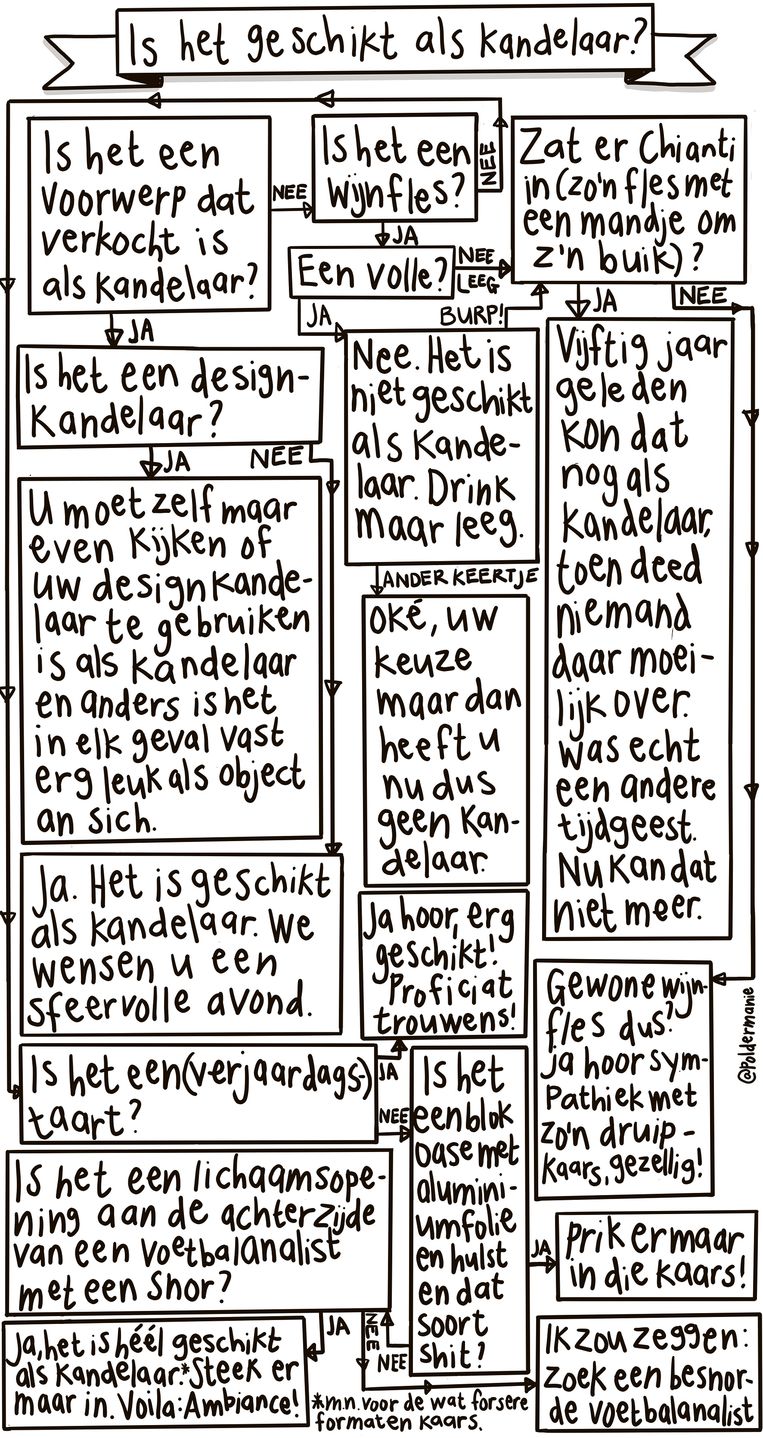 Is het geschikt als kandelaar?
Is het een
voorwerp dat
verkocht is
als kandelaar?
NEE
JA
Is het een
wijnfles?
NEE
JA
Een volle?
NEE
LEEG
JA
Zat er Chianti
in (zo'n fles met
een mandje om
z'n buik)?
JA
NEE
BURP!
Is het een design-
kandelaar?
JA
NEE
Nee. Het is
niet geschikt
als kande-
laar. Drink
maar leeg.
ANDER KEERTJE
Vijftig jaar
geleden
kon dat
nog als
kandelaar,
toen deed
niemand
daar moei-
lijk over.
Was echt
een andere
tijdgeest.
Nu kan dat
niet meer.
U moet zelf maar
even kijken of
uw design kande-
laar te gebruiken
is als kandelaar
en anders is het
in elk geval vast
erg leuk als object
an sich.
Oké, uw
keuze
maar dan
heeft u
nu dus
geen kan-
delaar.
Ja. Het is geschikt
als kandelaar. We
wensen u een
sfeervolle avond.
Ja hoor, erg
geschikt!
Proficiat
trouwens!
Gewone wijn-
fles dus?
Ja hoor sym-
pathiek met
zo'n druip-
kaars, gezellig!
@Poldermanie
Is het een (verjaardags)
taart?
JA
NEE
Is het
een blok
oase met
alumini-
umfolie
en hulst
en dat
soort
shit?
JA
NEE
Prik er maar
in die kaars!
Is het een lichaamsope-
ning aan de achterzijde
van een voetbalanalist
met een snor?
JA
NEE
Ja, het is héél geschikt
als kandelaar.* Steek er
maar in. Voila: Ambiance!
*m.n. voor de wat forsere
formaten kaars.
Ik zou zeggen:
zoek een besnor-
de voetbalanalist